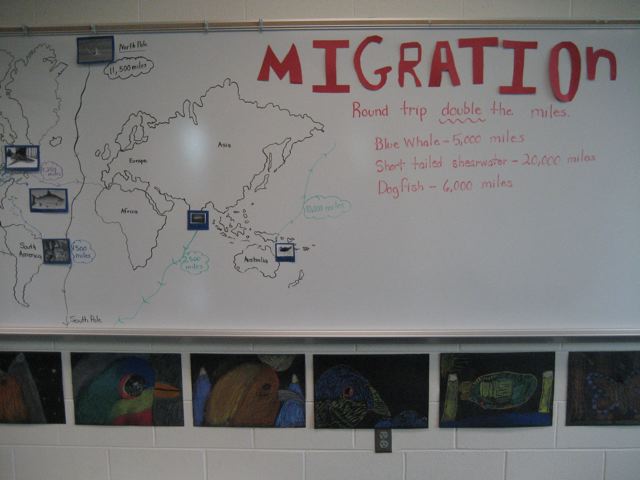 MIGRATIOn
Round trip double the miles.
Blue Whale - 5,000 miles
Short tailed shearwater - 20,000 miles
Dogfish - 6,000 miles
North Pole
11,500 miles
Asia
Europe
Africa
10,000 miles
South America
1500 miles
2,500 miles
Australia
South Pole